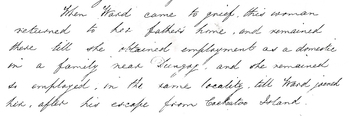 When Ward came to grief, this woman
returned to her father's home, and remained
there till she obtained employment as a domestic
in a family near Dungog, and she remained
so employed, in the same locality, till Ward joined
her, after his escape from Cockatoo Island.